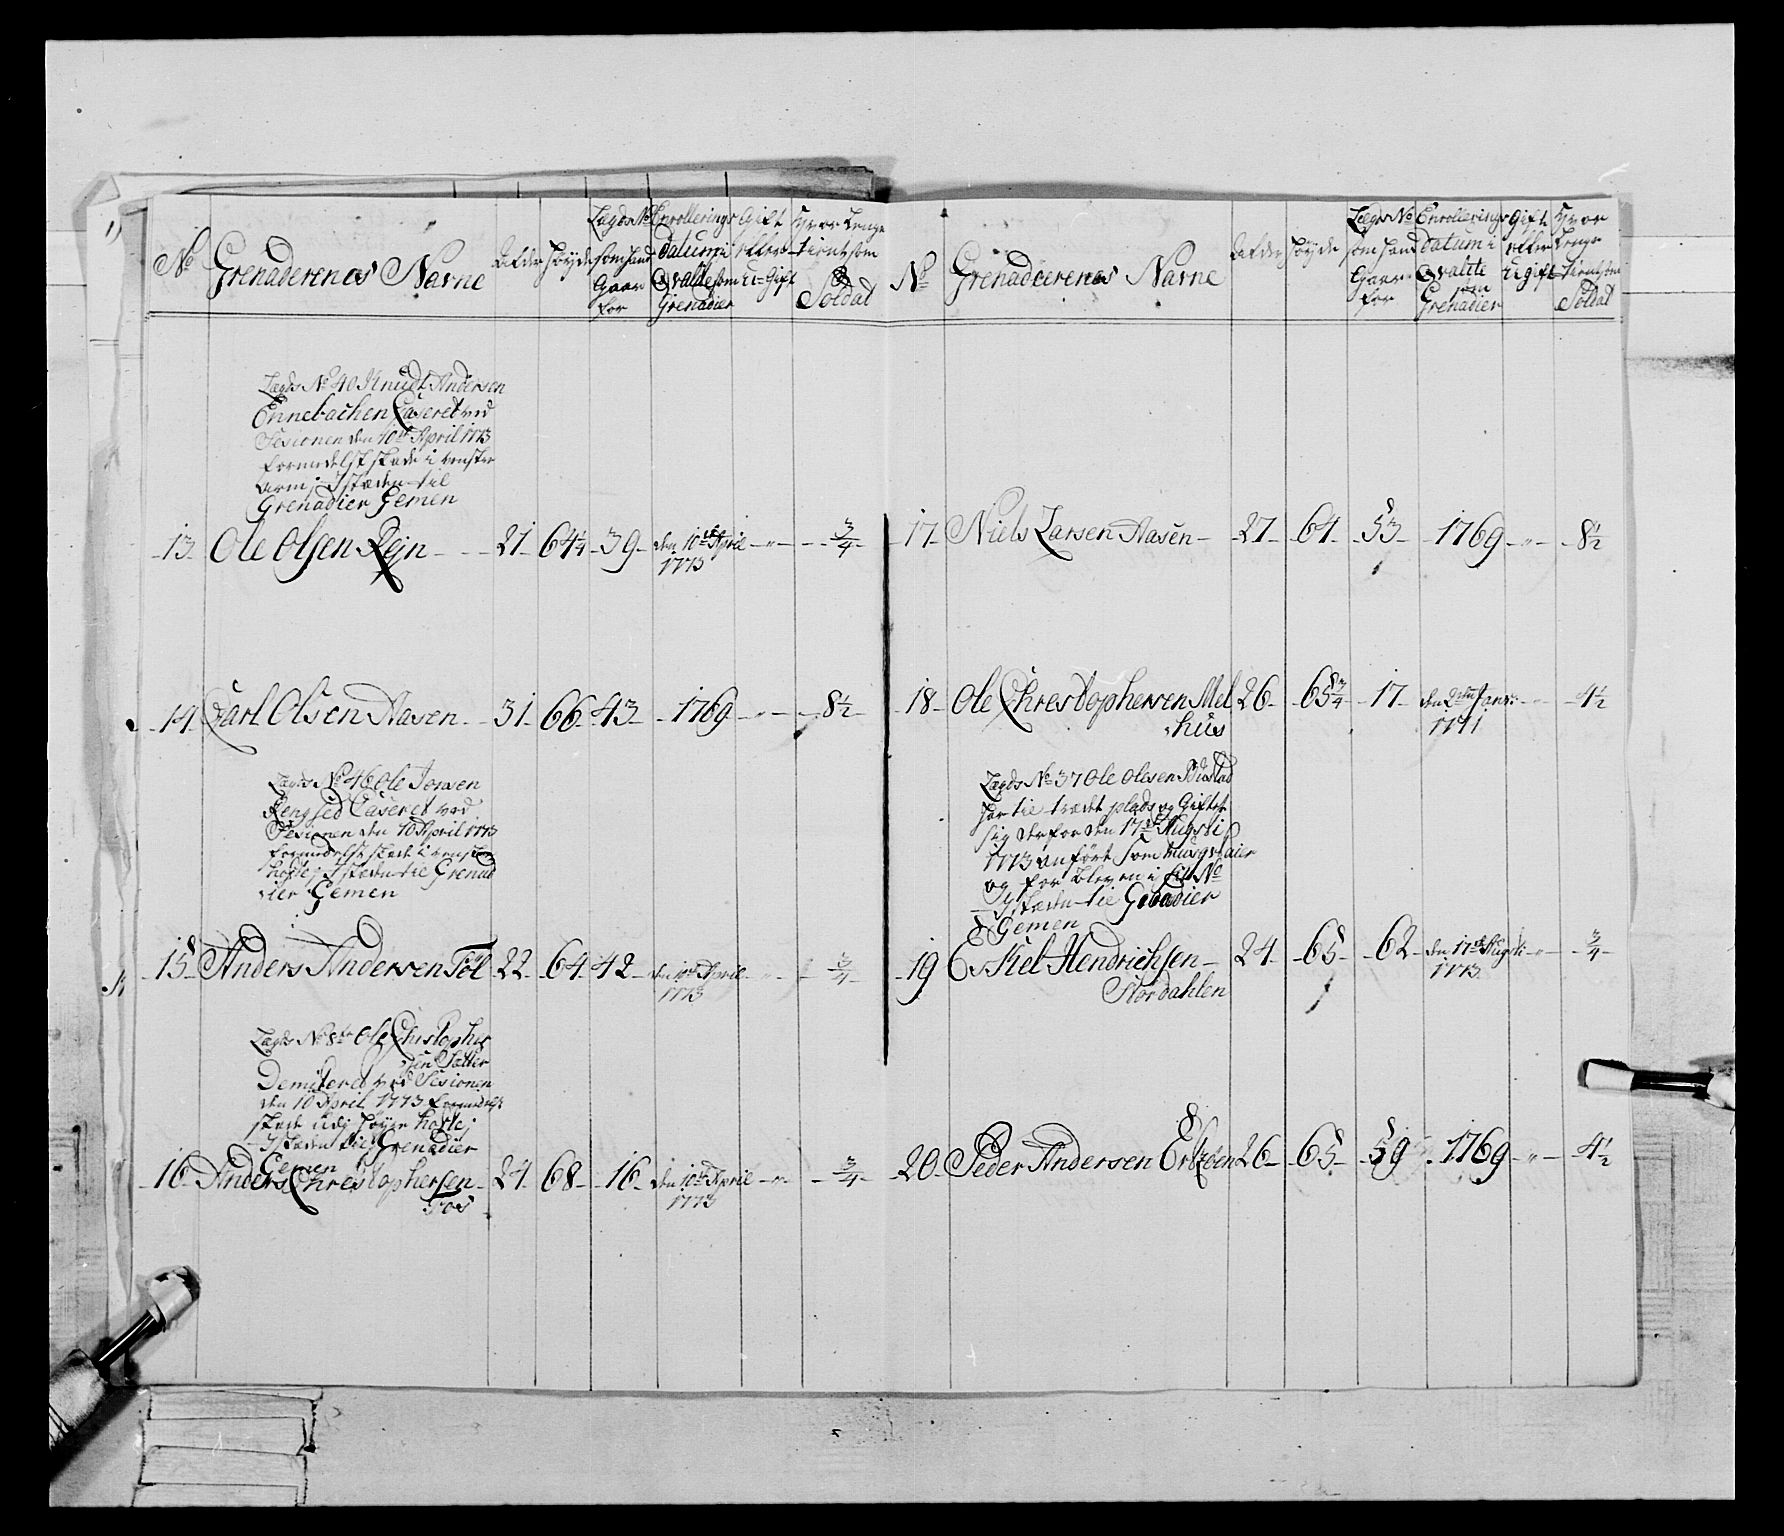 No Grenaderenes Navne Alder Høyde Lægds No som hand Gaar for Enrollerings Datum i Qvalite som Grenadier Gift eller U-Gift Hvor Lenge tient som Soldat
Lægds No 40 Knudt Andersen
Ennebachen Caseret ved
Sesionen den 10de April 1773
formedelst skade i venster
Arm, I stæden til
Grenadier Gemen
13 Ole Olsen Rejn 21 64¼ 39 den 10de April - " - ¾
1773
14 Carl Olsen Aasen 31 66 43 1769 - " - 8½
Lægds No 46 Ole Jonsen
Rengsed Caseret ved
Sesionen den 10 April 1773
formedelst skade i venster
hofte, I stæden til Grenad
ier Gemen
15 Anders Andersen Töl 22 64 42 den 10de April - " - ¾
1773
Lægds No 8de Ole Christopher
sen Sætter
Demiteret ved Sesionen
den 10 April 1773 formedelst
skade udj høyre hofte,
I stæden til Grenadier
Gemen
16 Anders Chrestophersen 24 68 16 den 10de April - " - ¾
Fos 1773
No Grenadeerenes Navne Alder Høyde Lægds No som hand Gaar for Enrollerings Datum i Qvalite som Grenadier Gift eller Ugift Hvor Lenge tient som Soldat
17 Niels Larsen Aasen 27 64 53 1769 - " - 8½
18 Ole Chrestophersen Mel 26 65¾ 17 den 2den Janv: - " - 4½
hus 1771
Lægds No 37 Ole Olesen Bustad
har til trædt plads og Giftet
sig derfor den 17de Augsti
1773 anført som
og for bleven i No
I stæden til Grenadier
Gemen
19 Eskel Hendrichsen 24 65 62 den 17de Augsti - " - ¾
Stordahlen 1773
20 Peder Andersen 26 65 59 1769 - " - 4½